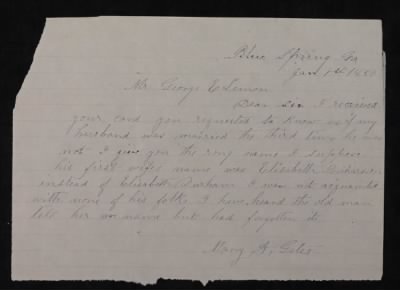 Blue Spring
Jan 1st
Mr. George E Lemon
Dear Sir I received
your card you requested to know if my
husband was married the third time he was
not I give you the rong name I suppose
his first wifes name was Elisabeth
instead of Elisabeth Durham I was not acquainted
with none of his folks I have heard the old man
tell her name but had forgotten it
Mary A. Giles